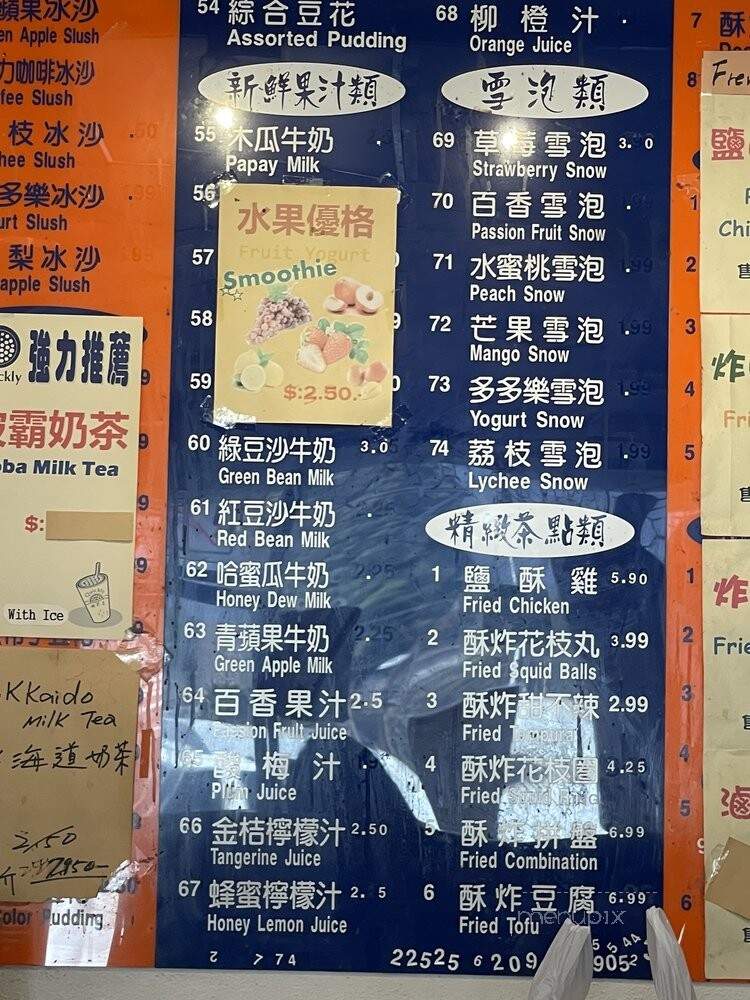 en Apple Slush
力咖啡冰沙
fee Slush
枝冰沙
hee Slush
多樂冰沙
urt Slush
梨冰沙
apple Slush
ckly 強力推薦
霸奶茶
oba Milk Tea
$:
With Ice
KKaido
Milk Tea
海道奶茶
olor Pudding
54 綜合豆花
Assorted Pudding
新鮮果汁類
55 木瓜牛奶
Papay Milk
56
水果優格
Fruit Yogurt
Smoothie
$:2.50.
57
58
59
60 綠豆沙牛奶 3.0
Green Bean Milk
61 紅豆沙牛奶
Red Bean Milk
62 哈蜜瓜牛奶
Honey Dew Milk
63 青蘋果牛奶
Green Apple Milk
64 百香果汁 2.5
Passion Fruit Juice
65 酸梅汁
Plum Juice
66 金桔檸檬汁 2.50
Tangerine Juice
67 蜂蜜檸檬汁 2.5
Honey Lemon Juice
68 柳橙汁
Orange Juice
雪泡類
69 草莓雪泡 3. 0
Strawberry Snow
70 百香雪泡
Passion Fruit Snow
71 水蜜桃雪泡
Peach Snow
72 芒果雪泡
Mango Snow
73 多多樂雪泡
Yogurt Snow
74 荔枝雪泡
Lychee Snow
精緻茶點類
1 鹽酥雞 5.90
Fried Chicken
2 酥炸花枝丸 3.99
Fried Squid Balls
3 酥炸甜不辣 2.99
Fried Tempura
4 酥炸花枝圈 4.25
Fried Squid
5 酥炸拼盤 6.99
Fried Combination
6 酥炸豆腐 6.99
Fried Tofu
menupix
2 7 74 22525 6 209
7
8
1
2
3
4
5
2
3
4
5
6